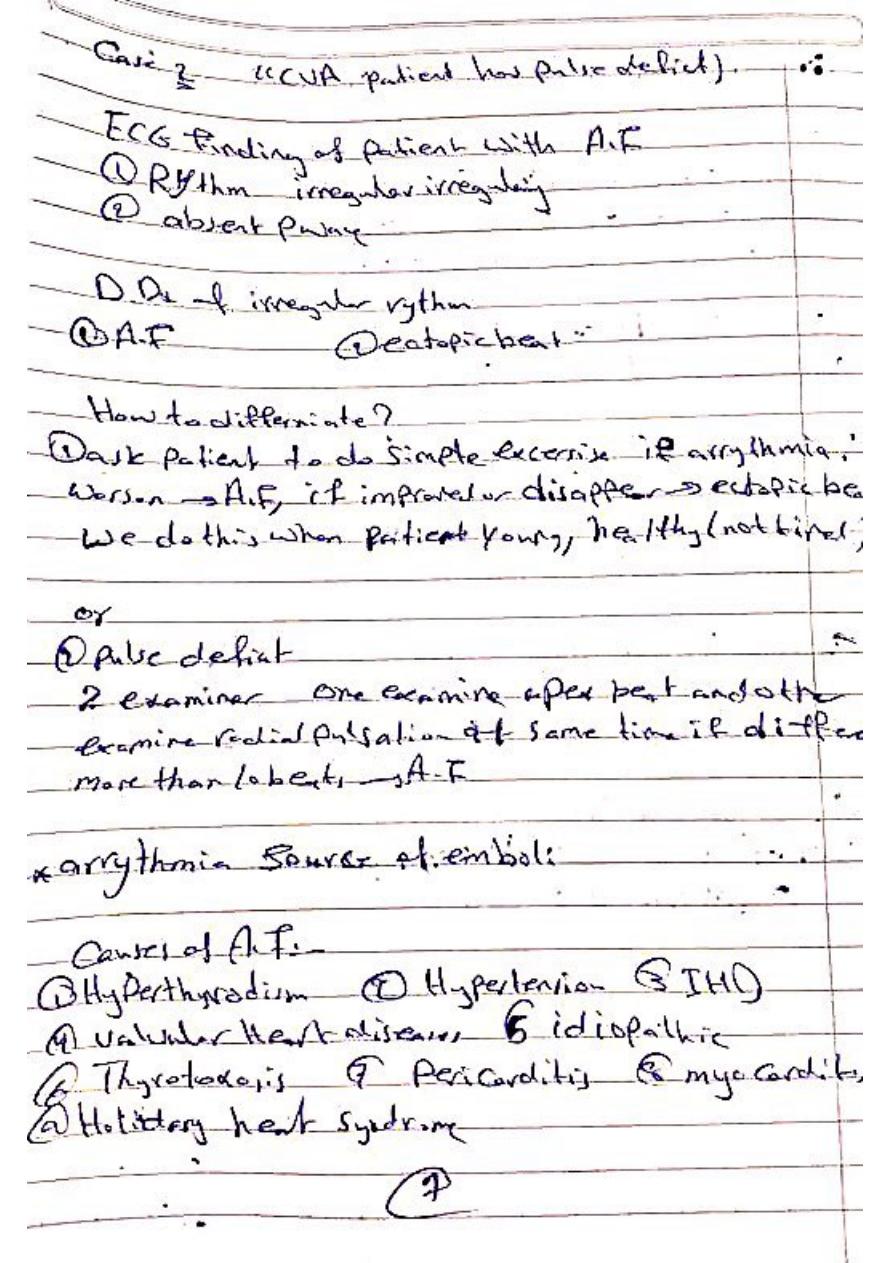 Case 2 "CVA patient has pulse deficit).
ECG finding of patient with A.F
① Rythm irregular irregularity
② absent P wave
D.Dx of irregular rythm
① A.F ② ectopic beat
How to differniate?
① ask patient to do simple excersise if arrythmia
worson → A.F, if improved or disapper → ectopic bea
we do this when patient young, healthy (not tired,
or
② pulse deficit
2 examiner one examine apex beat and othe
examine radial pulsation at same time if differ
more than 10 beats → A.F
* arrythmia source of emboli
Causes of A.F:-
① Hyperthyrodism ② Hypertension ③ IHD
④ valvular Heart diseases 5 idiopathic
⑥ Thyrotoxosis ⑦ Pericarditis ⑧ myocarditis
⑨ Holiday heart syndrome
7